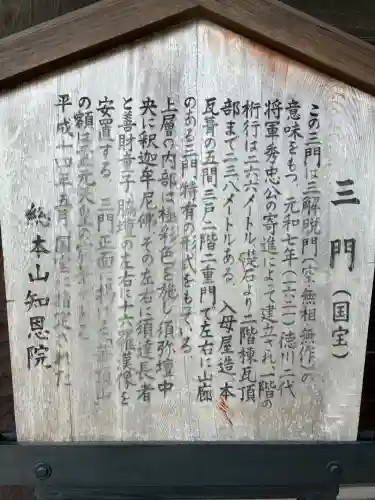 三門（国宝）
この三門は三解脱門（空・無相・無作）の
意味をもつ。元和七年（一六二一）徳川二代
将軍秀忠公の寄進によって建立され、一階の
桁行は二六・六メートル、礎石より二階棟瓦頂
部まで二三・八メートルある。入母屋造、本
瓦葺の五間三戸二階二重門で左右に山廊
のある三門特有の形式をもっている。
上層の内部は極彩色を施し、須弥壇中
央に釈迦牟尼佛、その左右に須達長者
と善財童子、脇壇の左右に十六羅漢像を
安置する。三門正面に掲げる「華頂山」
の額は霊元天皇の宸筆
平成十四年五月、国宝に指定された。
総本山知恩院